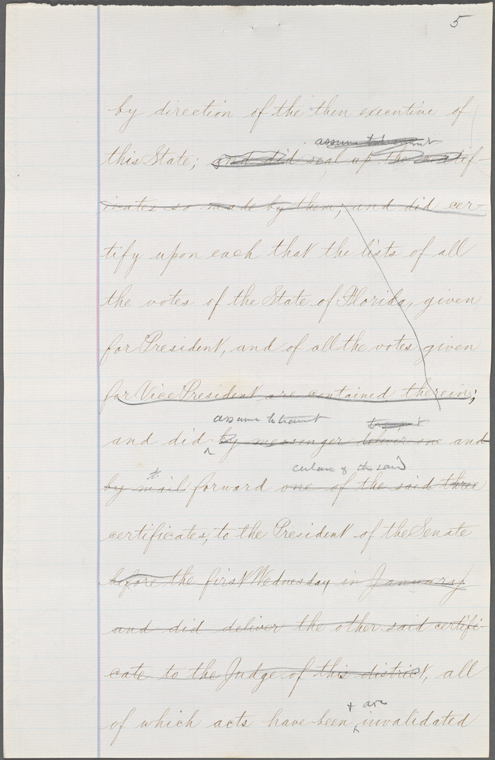 5
by direction of the then executive of
assume to
this State; and did seal up the certif-
icates so made by them; and did cer-
tify upon each that the lists of all
the votes of the State of Florida, given
for President, and of all the votes given
for Vice President are contained therein;
assume to transmit
and did by messenger deliver one and
of the said
by mail to forward one of the said three
certificates, to the President of the Senate
before the first Wednesday in January,
and did deliver the other said certifi-
cate to the Judge of this district, all
+ are
of which acts have been invalidated